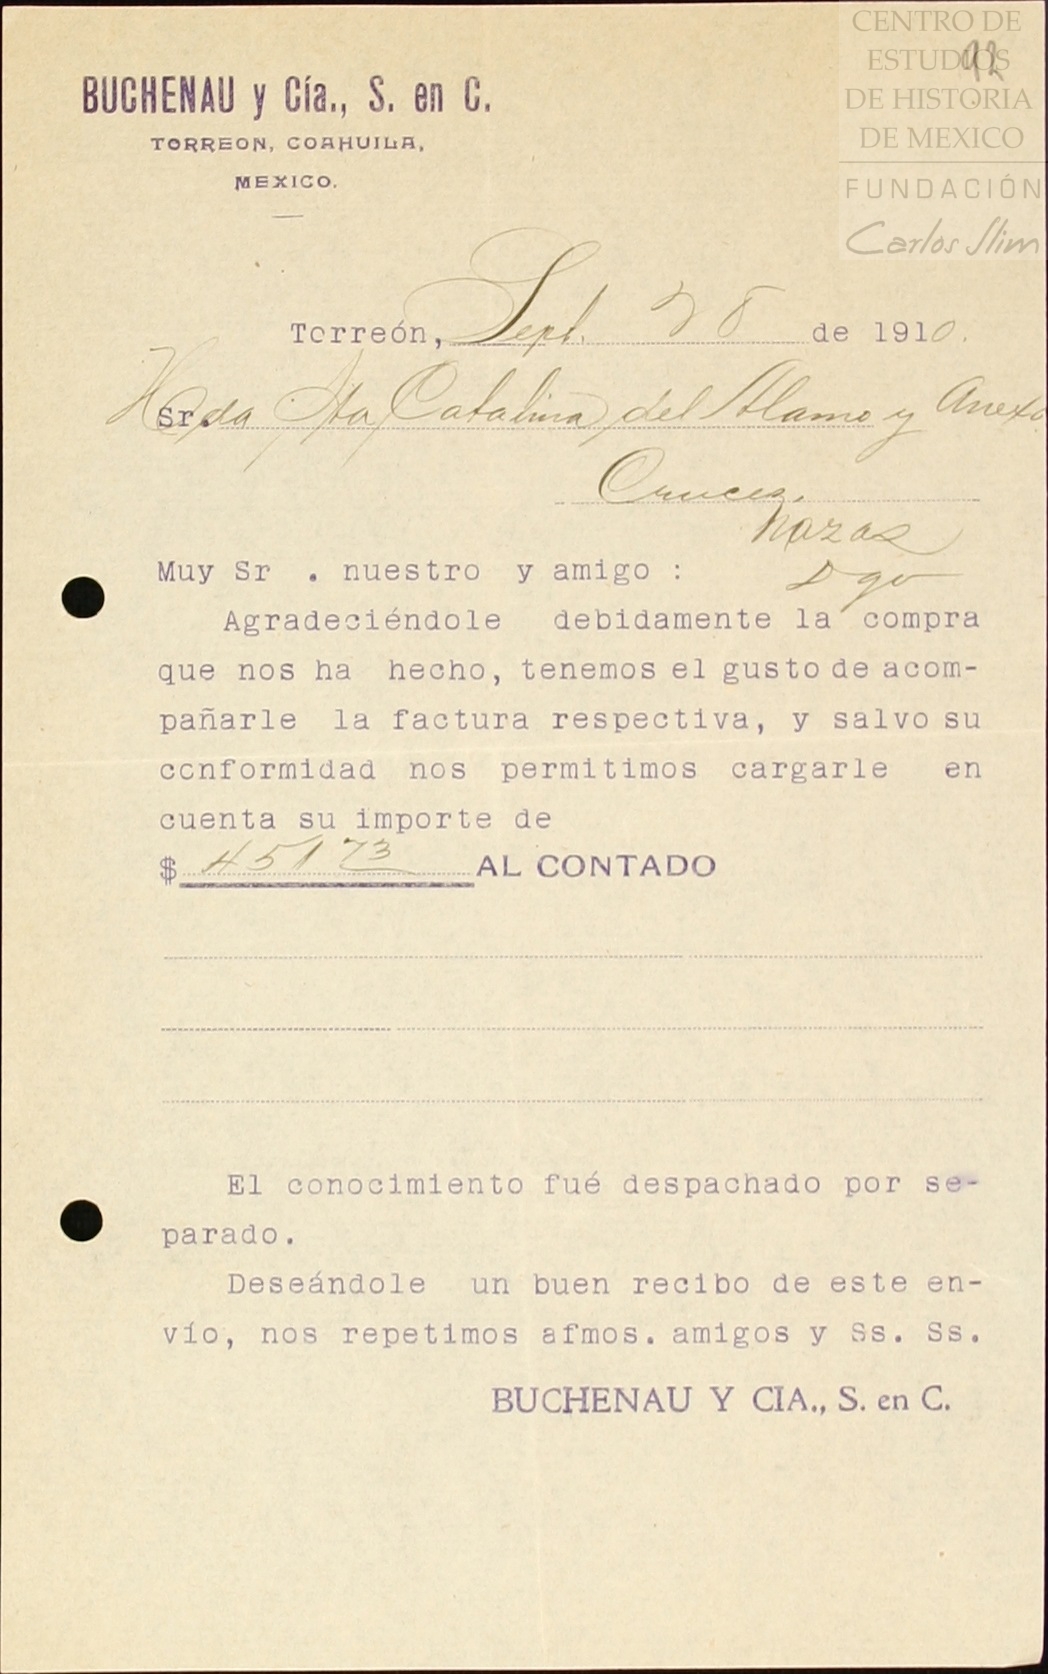 CENTRO DE
ESTUDIOS
DE HISTORIA
DE MEXICO
FUNDACIÓN
Carlos Slim
92
BUCHENAU y Cía., S. en C.
TORREON, COAHUILA,
MEXICO.
Torreón, Sept. 28 de 1910.
Sr. Hda Sta Catalina del Alamo y Anexos
Cruces.
Nazas
Dgo
Muy Sr . nuestro y amigo :
Agradeciéndole debidamente la compra
que nos ha hecho, tenemos el gusto de acom-
pañarle la factura respectiva, y salvo su
conformidad nos permitimos cargarle en
cuenta su importe de
$ 451 73 AL CONTADO
El conocimiento fué despachado por se-
parado.
Deseándole un buen recibo de este en-
vío, nos repetimos afmos. amigos y Ss. Ss.
BUCHENAU Y CIA., S. en C.